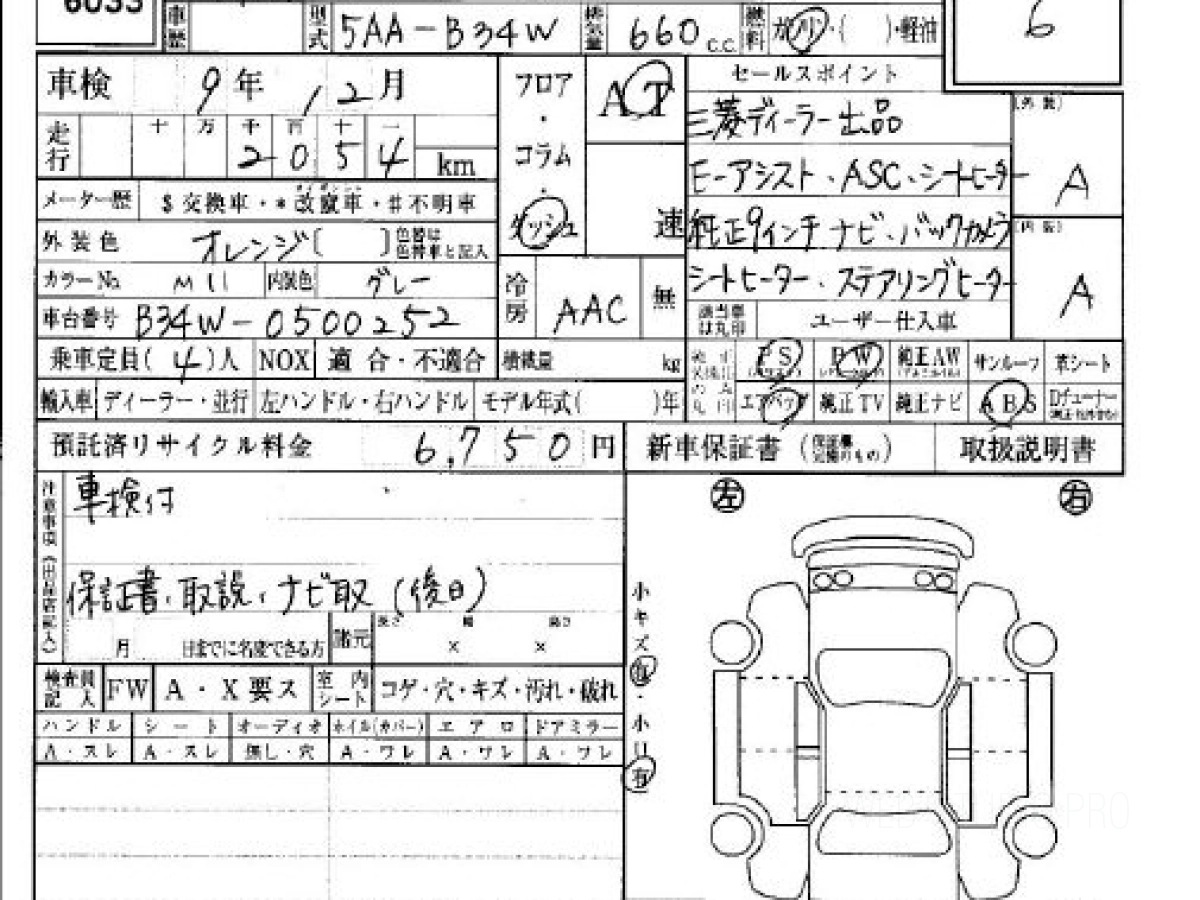 6033
車歴 型式 5AA-B34W 排気量 660 c.c. 燃料 ガソリン・( )・軽油 6
車検 9年 12月 フロア・コラム・ダッシュ AT セールスポイント (外装) A
三菱ディーラー出品
走行 十 万 千 百 十 一
2 0 5 4 km
モーアシスト、ASC、シートヒーター
メーター歴 $ 交換車・* 改竄車・# 不明車 速 純正9インチナビ、バックカメラ (内装) A
外装色 オレンジ[ ] 色替は色替車と記入
シートヒーター、ステアリングヒーター
カラーNo. M11 内装色 グレー 冷房 AAC 無
車台番号 B34W-0500252 該当車は丸印 ユーザー仕入車
乗車定員( 4 )人 NOX 適合・不適合 積載量 kg PS PW 純正AW サンルーフ 革シート
輸入車 ディーラー・並行 左ハンドル・右ハンドル モデル年式( )年 エアバッグ 純正TV 純正ナビ ABS Dチューナー
預託済リサイクル料金 6,750 円 新車保証書 (保証書完備のもの) 取扱説明書
注意事項(出品店記入) 車検付 左 右
保証書、取説、ナビ取(後日)
月 日までに名変できる方 諸元 長さ × 幅 × 高さ
小キズ有・小凹有
検査員記入 FW A・X要ス 室内シート コゲ・穴・キズ・汚れ・破れ
ハンドル シート オーディオ ホイル(カバー) エアロ ドアミラー
A・スレ A・スレ 無し・穴 A・ワレ A・ワレ A・ワレ